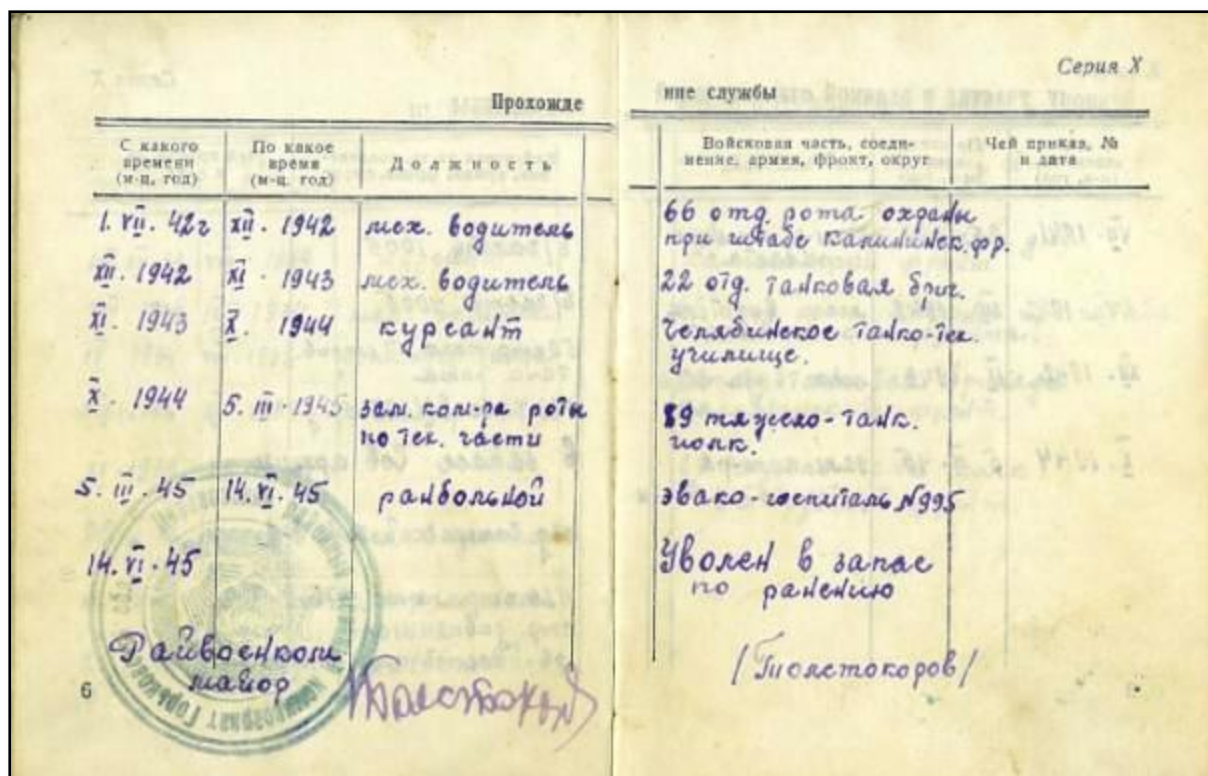 Серия X
Прохожде ние службы
С какого времени (м-ц, год)
По какое время (м-ц, год)
Должность
Войсковая часть, соеди-
нение, армия, фронт, округ
Чей приказ, №
и дата
1. VII. 42г XII. 1942 мех. водитель 66 отд. рота охраны
при штабе Калининск. фр.
XII. 1942 XI. 1943 мех. водитель 22 отд. танковая бриг.
XI. 1943 X. 1944 курсант Челябинское танко-тех.
училище.
X. 1944 5. III. 1945 зам. ком-ра роты 89 тяжело-танк.
по тех. части полк.
5. III. 45 14. VI. 45 ранбольной эвако-госпиталь №995
14. VI. 45 Уволен в запас
по ранению
Райвоенком
майор
/Толстокоров/
6